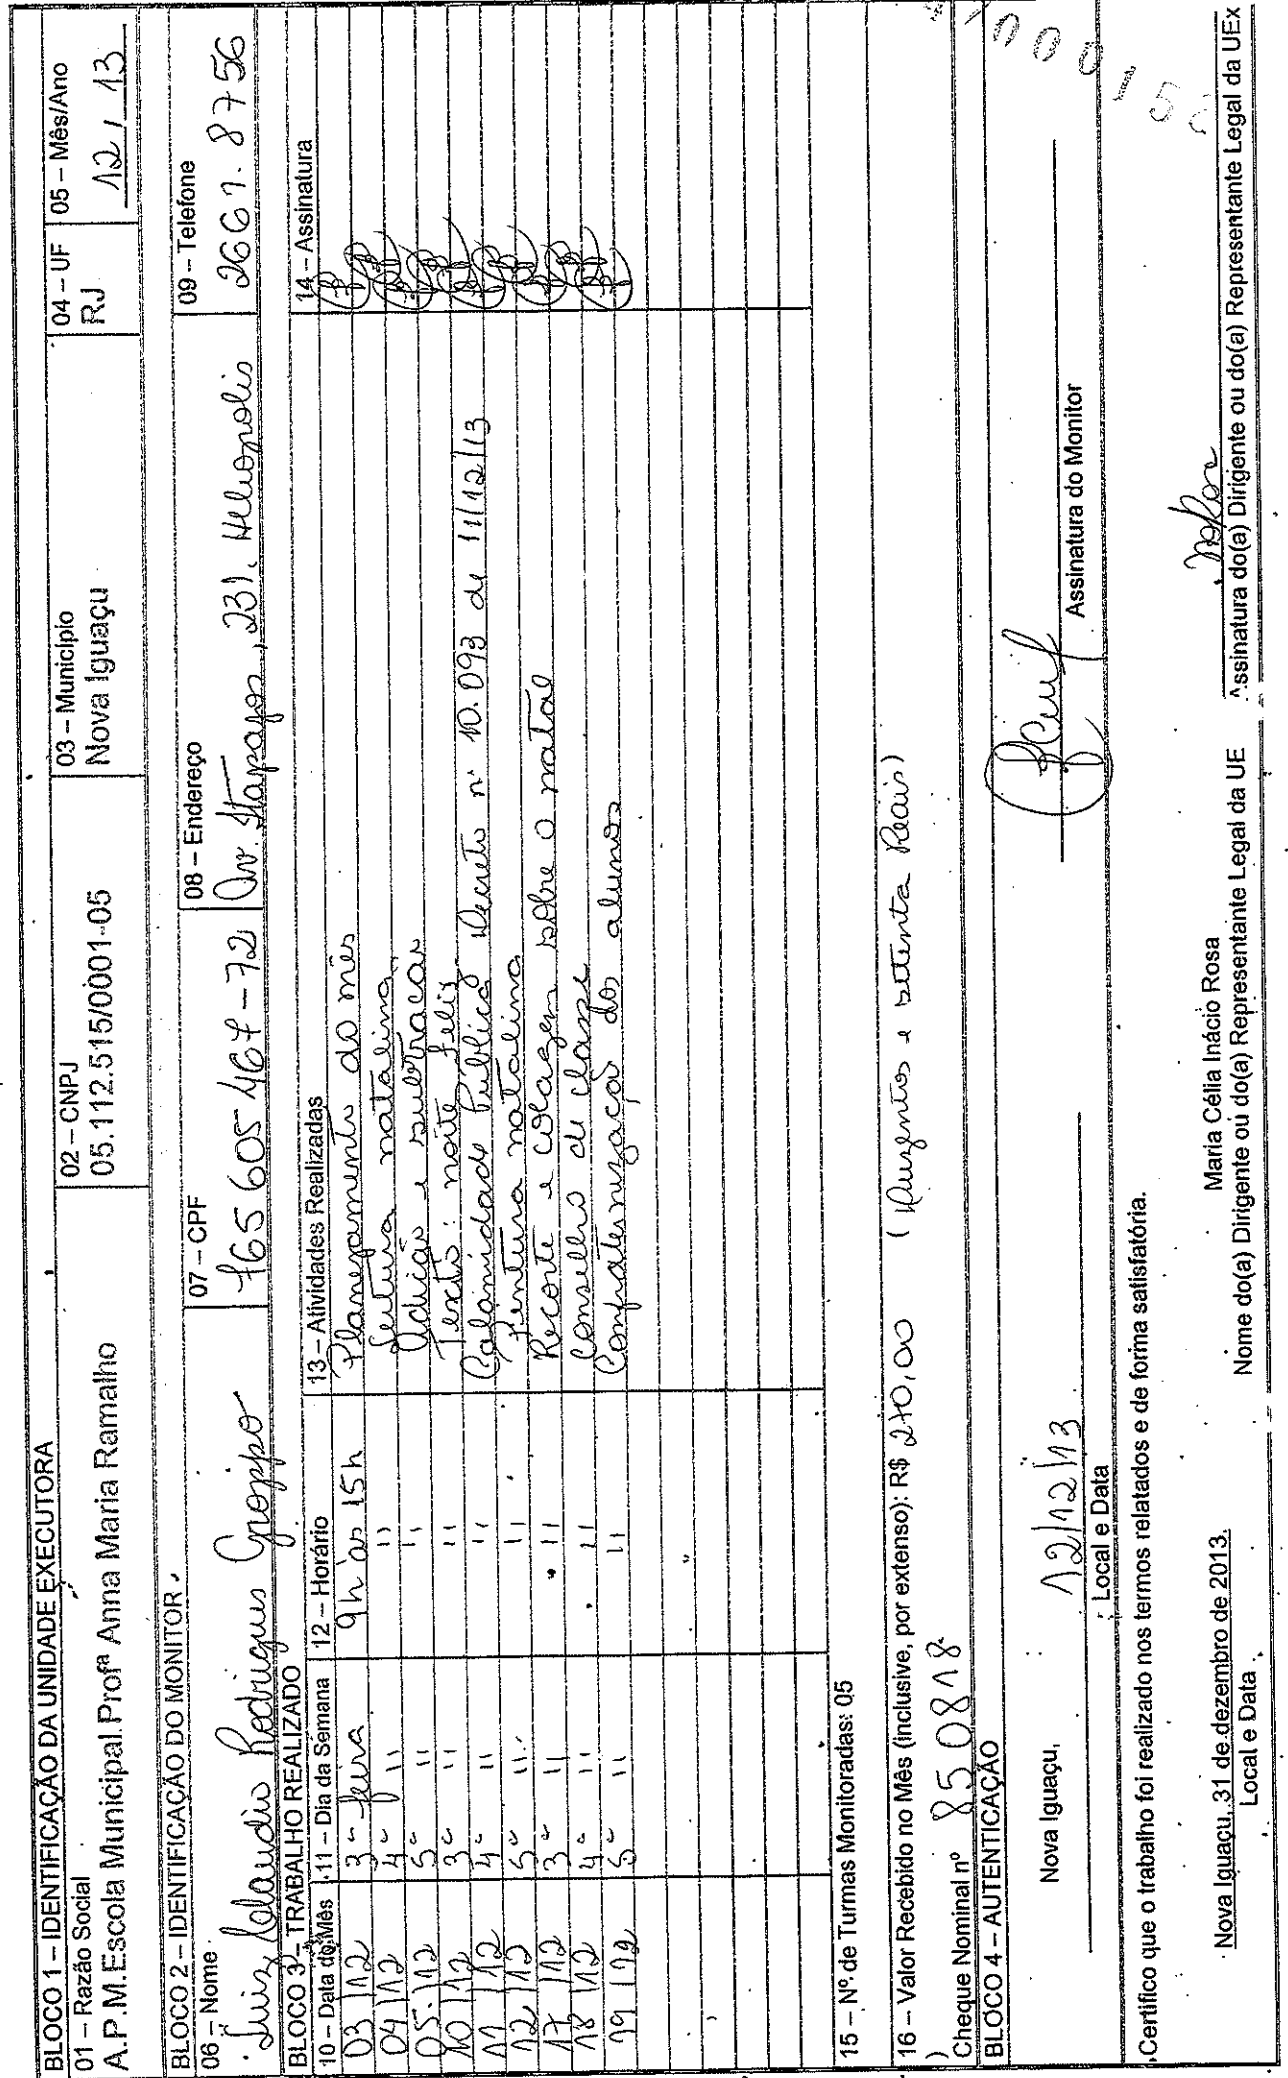 BLOCO 1 – IDENTIFICAÇÃO DA UNIDADE EXECUTORA
01 – Razão Social
A.P.M.Escola Municipal.Profª Anna Maria Ramalho
02 – CNPJ
05.112.515/0001-05
03 – Município
Nova Iguaçu
04 – UF
RJ
05 – Mês/Ano
12 / 13
BLOCO 2 – IDENTIFICAÇÃO DO MONITOR
06 – Nome
Luiz Claudio Rodrigues Groppo
07 – CPF
765 605 467-72
08 – Endereço
Av. Itapajos, 231. Heliopolis
09 – Telefone
2667.8756
BLOCO 3 – TRABALHO REALIZADO
10 – Data do Mês 11 – Dia da Semana 12 – Horário 13 – Atividades Realizadas 14 – Assinatura
03/12 3ª feira 9h às 15h Planejamento do mês
04/12 4ª " " Leitura natalina
05/12 5ª " " Adição e subtracas
10/12 3ª " " Texto: noite feliz
11/12 4ª " " Calamidade Pública Decreto nº 10.093 de 11/12/13
12/12 5ª " " Pintura natalina
17/12 3ª " " Recorte e colagem sobre o natal
18/12 4ª " " Conselho de classe
19/12 5ª " " Confraternização dos alunos
15 – Nº. de Turmas Monitoradas: 05
16 – Valor Recebido no Mês (inclusive, por extenso): R$ 270,00 (Duzentos e setenta Reais)
)
Cheque Nominal nº 850818
BLOCO 4 – AUTENTICAÇÃO
Nova Iguaçu, 12/12/13
Local e Data
Assinatura do Monitor
Certifico que o trabalho foi realizado nos termos relatados e de forma satisfatória.
Nova Iguaçu, 31 de dezembro de 2013.
Local e Data
Maria Célia Inácio Rosa
Nome do(a) Dirigente ou do(a) Representante Legal da UE
Assinatura do(a) Dirigente ou do(a) Representante Legal da UEx